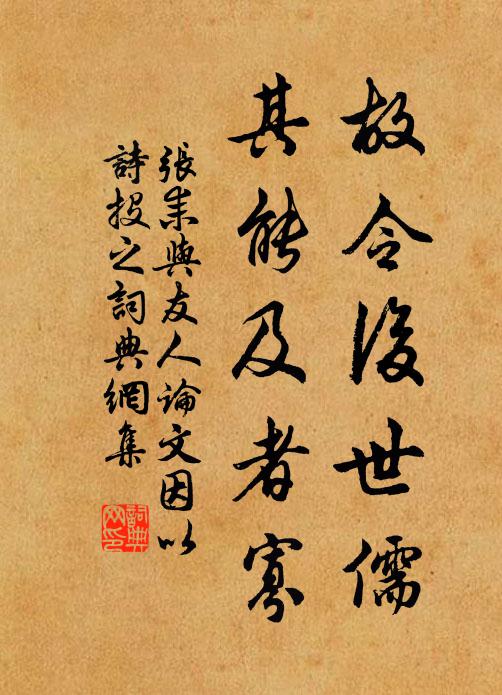 故令後世儒
其能及者寡
張耒與友人論文因以
詩投之詞典網集
詞典网印